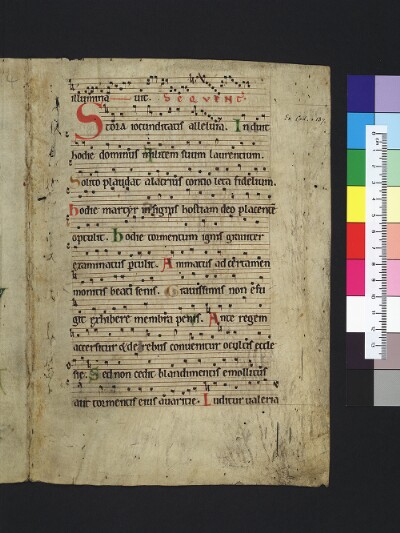 illumina uit. SEQVENT.
Stola iocunditatis alleluia. Induit
hodie dominus militem suum laurentium.
Solito plaudat alacrius contio leta fidelium.
hodie martyr insignis hostiam deo placente
optulit. hodie tormentum ignis grauiter
examinatus ptulit. Animatus ad certamen
monitis beati senis. Grauissimis non effu
git exhibere membra penis. Ante regem
accersitur & de rebus conuentur occultis eccle
sie. Sed non cedit blandimentis emollitus
aut tormentis eius auaritie. Luditur ualeria